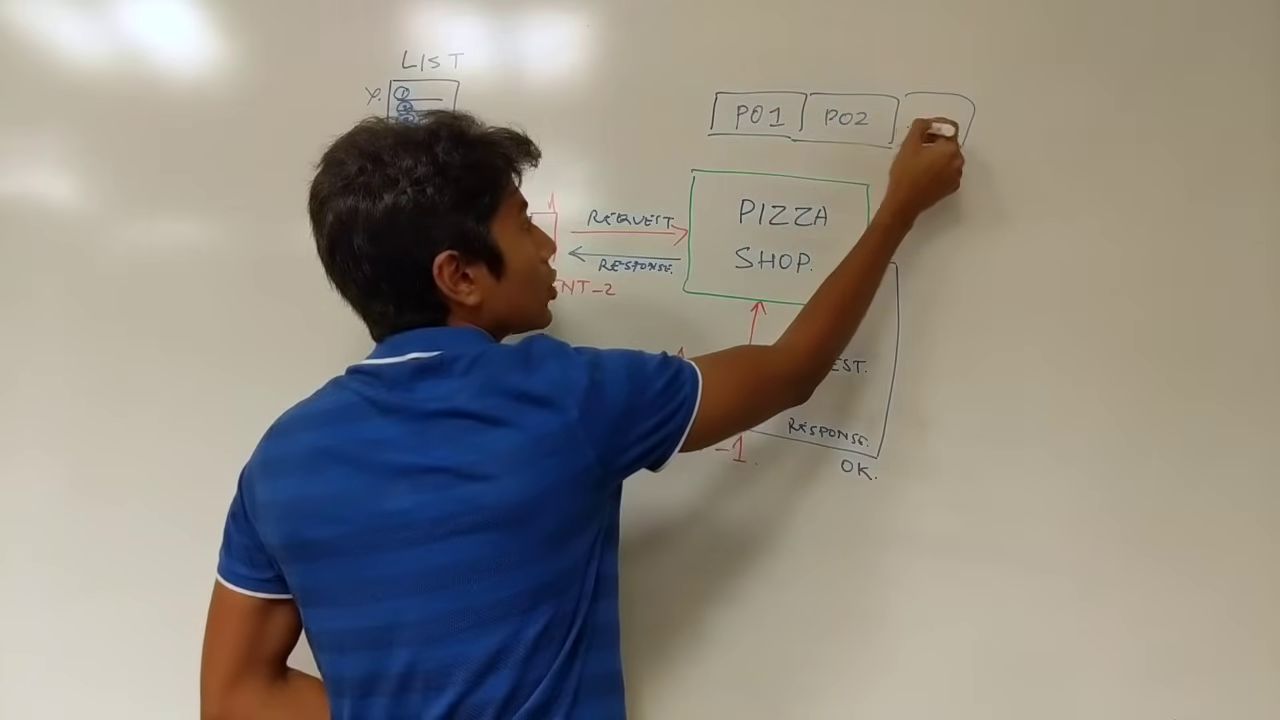 LIST
①
②
PO1 PO2
REQUEST
RESPONSE.
PIZZA
SHOP.
NT-2
EST.
RESPONSE.
-1.
OK.